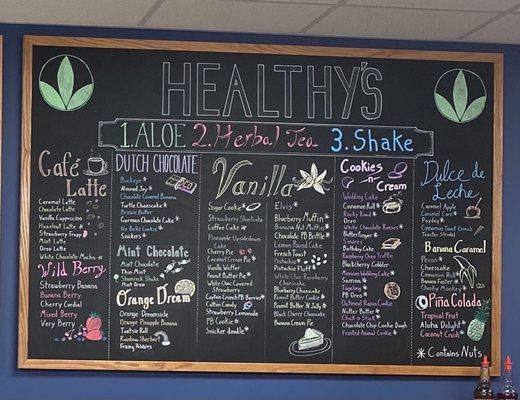 HEALTHY'S
1. ALOE 2. Herbal Tea 3. Shake
Café Latte
Caramel Latte
Chocolate Latte
Vanilla Cappuccino
Hazelnut Latte *
Strawberry Frapp
Mint Latte
Oreo Latte
White Chocolate Mocha *
Wild Berry
Strawberry Banana
Banana Berry
Cherry Cordial
Mixed Berry
Very Berry
DUTCH CHOCOLATE
Buckeye
Almond Joy *
Chocolate Covered Banana
Turtle Cheesecake *
Brownie Batter
German Chocolate Cake *
No Bake Cookie *
Snickers *
Mint Chocolate
Mint Chocolate
Thin Mint
Shamrock Shake
Orange Dream
Orange Dreamsicle
Orange Pineapple Banana
Tootsie Roll
Rainbow Sherbet
Fruity Pebbles
Vanilla
Sugar Cookie *
Strawberry Shortcake
Coffee Cake *
Pineapple Upsidedown Cake
Cherry Pie
Coconut Cream Pie
Vanilla Waffer
Peanut Butter Pie *
White Choc Covered Strawberry
Captain Crunch PB Berries *
Cotton Candy
Strawberry Lemonade
PB Cookie *
Snicker doodle *
Elvis *
Blueberry Muffin *
Banana Nut Muffin *
Chocolate PB Brittle *
Lemon Pound Cake
French Toast
Pistachio *
Pistachio Fluff *
White Choc Raspberry Cheesecake
Blueberry Cheesecake
Peanut Butter Cookie *
Peanut Butter N Jelly *
Black Cherry Cheesecake
Banana Cream Pie *
Cookies n Cream
Wedding Cake
Cinnamon Roll *
Rocky Road *
Oreo
White Chocolate Reeses *
Butterfinger *
Smores
Birthday Cake
Raspberry Oreo Truffle
Blackberry Cobbler
Mexican Wedding Cake
Samoa *
Tagalong *
PB Oreo *
Oatmeal Raisin Cookie *
Nutter Butter *
Chick o Stick *
Chocolate Chip Cookie Dough
Frosted Animal Cookie *
Dulce de Leche
Caramel Apple
Payday *
Cinnamon Toast Crunch *
Banana Caramel
Pecan *
Cheesecake
Banana Cream Pie *
Chunky Monkey *
Piña Colada
Tropical Fruit
Aloha Delight *
Coconut Crush
* Contains Nuts